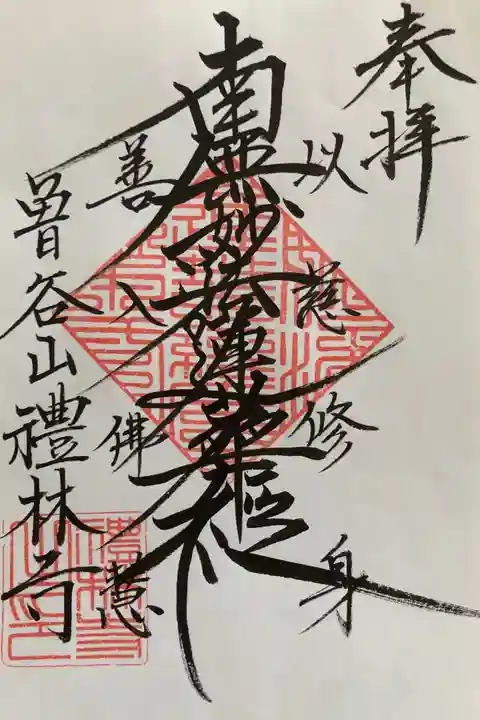 奉拝
以慈修身
南無妙法蓮華経
善入佛慧
曽谷山禮林寺